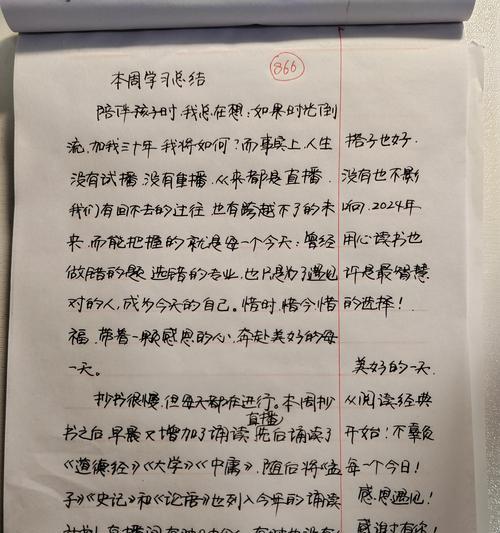 866
本周学习总结
陪伴孩子时,我总在想:如果时光倒
流,加我三十年 我将如何?而事实上,人生
没有试播,没有重播,从来都是直播.
我们有回不去的过往 也有跨越不了的未
来,而能把握的就是每一个今天:曾经
做错的题 选错的专业,也只是为了遇见
对的人,成为今天的自己。惜时,惜今惜
福,带着一颗感恩的心,奔赴美好的每
一天。
抄书很慢,但每天都在进行。本周抄
直播
书之后,早晨又增加了诵读,先后诵读了
《道德经》《大学》《中庸》,随后将《孟
子》《史记》和《论语》也列入今年的诵读
搭子也好,
没有也不影
响,2024年
用心读书也
许是最智慧
的选择!
美好的一天,
从阅读经典
开始!不辜负
每一个今日!
感恩遇见!
感谢有你!